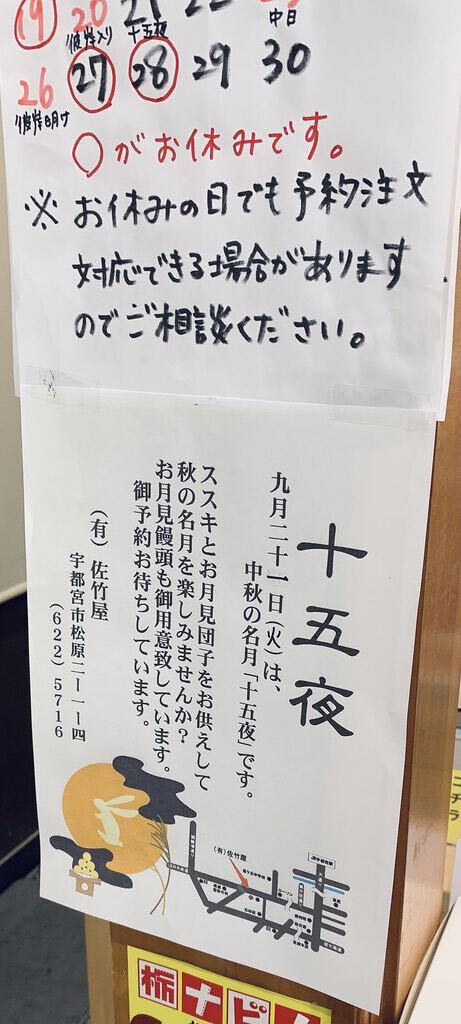 19 20 21 22
彼岸入り 十五夜 中日
26 27 28 29 30
彼岸明け
○がお休みです。
※ お休みの日でも予約注文
対応できる場合があります
のでご相談ください。
十五夜
九月二十一日(火)は、
中秋の名月「十五夜」です。
ススキとお月見団子をお供えして
秋の名月を楽しみませんか?
お月見饅頭も御用意致しています。
御予約お待ちしています。
(有)佐竹屋
宇都宮市松原二ー一ー四
(622)5716
(有)佐竹屋
JR宇都宮駅
栃ナビ!